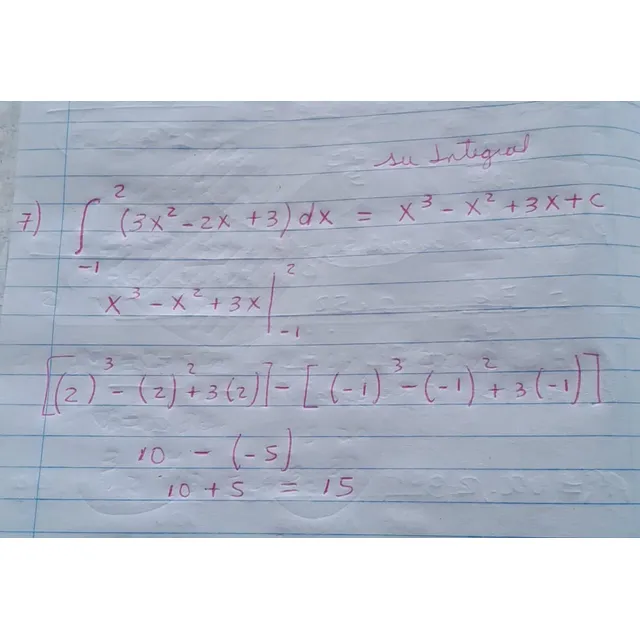 su Integral
7) ∫₋₁² (3x² - 2x + 3) dx = x³ - x² + 3x + c
x³ - x² + 3x |₋₁²
[(2)³ - (2)² + 3(2)] - [(-1)³ - (-1)² + 3(-1)]
= 10 - (-5)
10 + 5 = 15